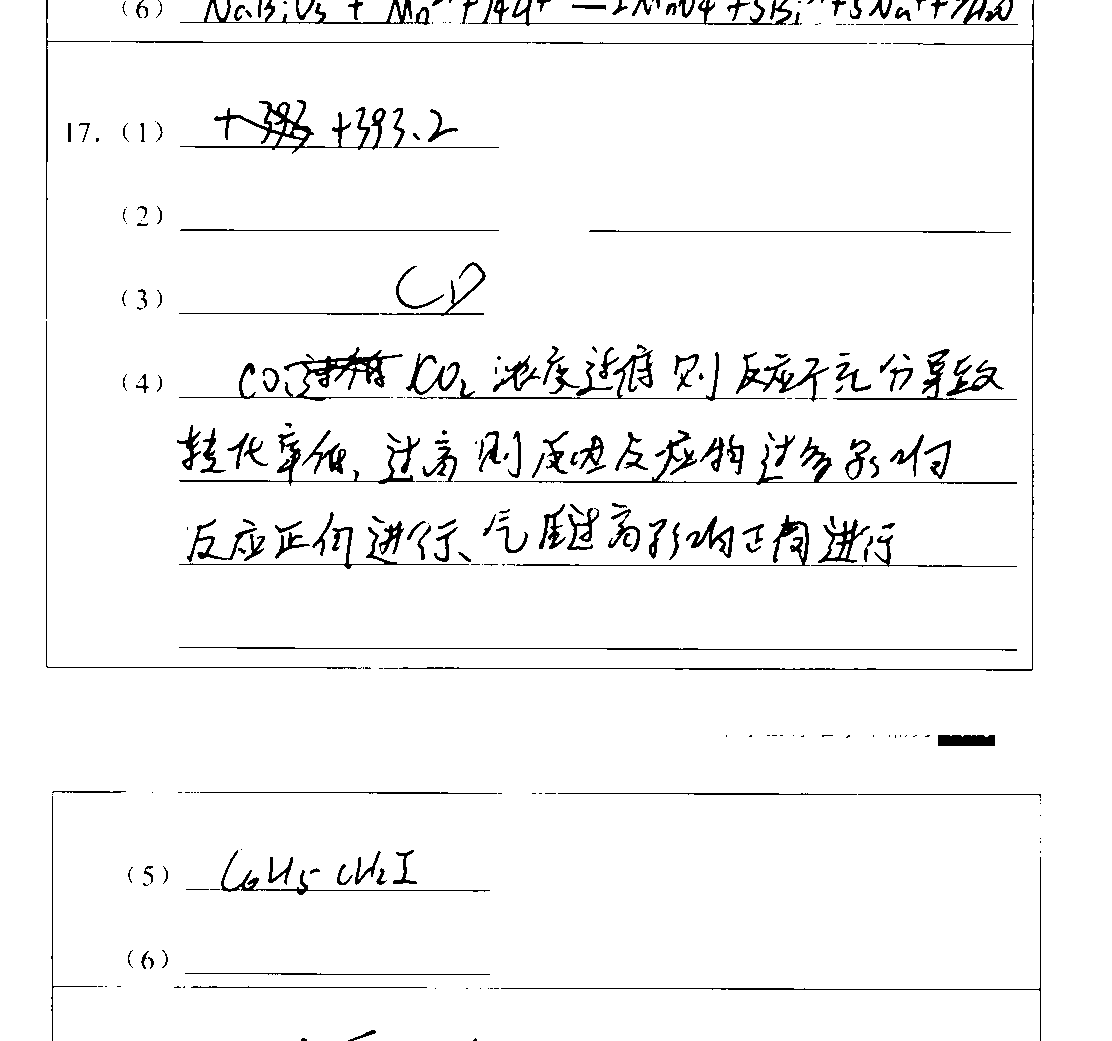 (6) NaBiO3 + Mn²⁺ + 14H⁺ — 2MnO4 + 5Bi³⁺ + 5Na⁺ + 7H2O
17. (1) +393 +393.2
(2)
(3) CD
(4) CO2 CO2 浓度过低则反应不充分导致
转化率低,过高则反应物过多影响
反应正向进行、气压过高影响正向进行
(5) C6H5 CH2I
(6)